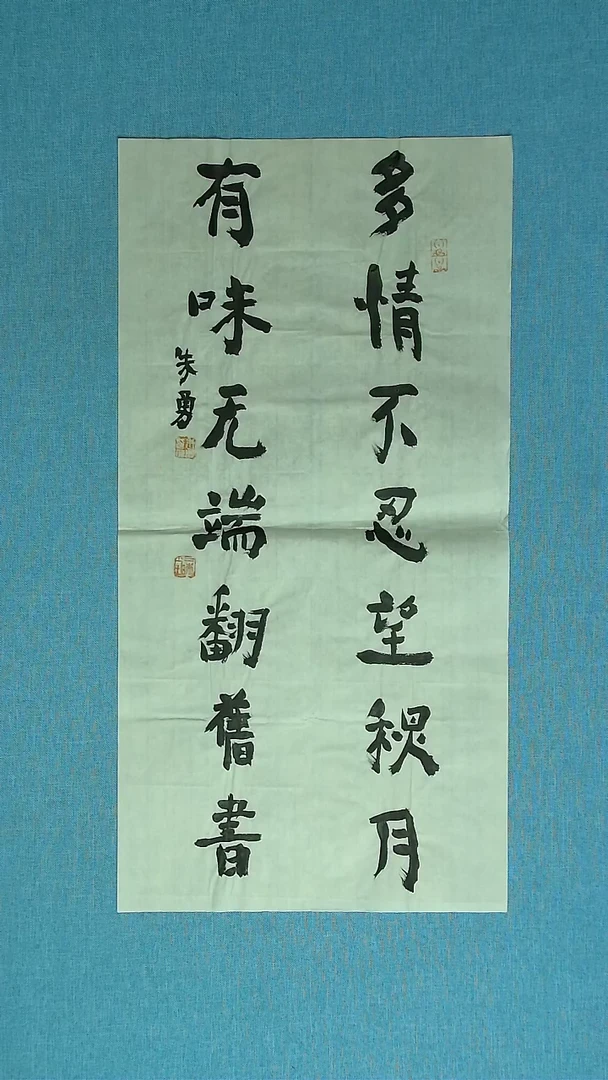 多情不忍望秋月
有味无端翻舊書
朱勇